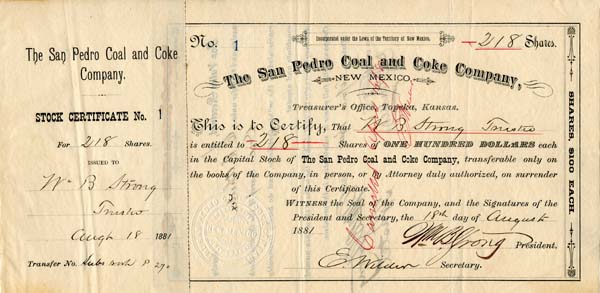 The San Pedro Coal and Coke
Company.
STOCK CERTIFICATE No. 1
For 218 Shares.
ISSUED TO
Wm B Strong
Trustee
Augt 18 1881
Transfer No.
No. 1
Incorporated under the Laws of the Territory of New Mexico.
218 Shares.
The San Pedro Coal and Coke Company,
NEW MEXICO.
Treasurer's Office, Topeka, Kansas.
This is to Certify, That W B Strong Trustee
is entitled to 218 Shares of ONE HUNDRED DOLLARS each
in the Capital Stock of The San Pedro Coal and Coke Company, transferable only on
the books of the Company, in person, or by Attorney duly authorized, on surrender
of this Certificate.
WITNESS the Seal of the Company, and the Signatures of the
President and Secretary, the 18th day of August
1881
Wm B Strong President.
E. Wilder Secretary.
SHARES, $100 EACH.